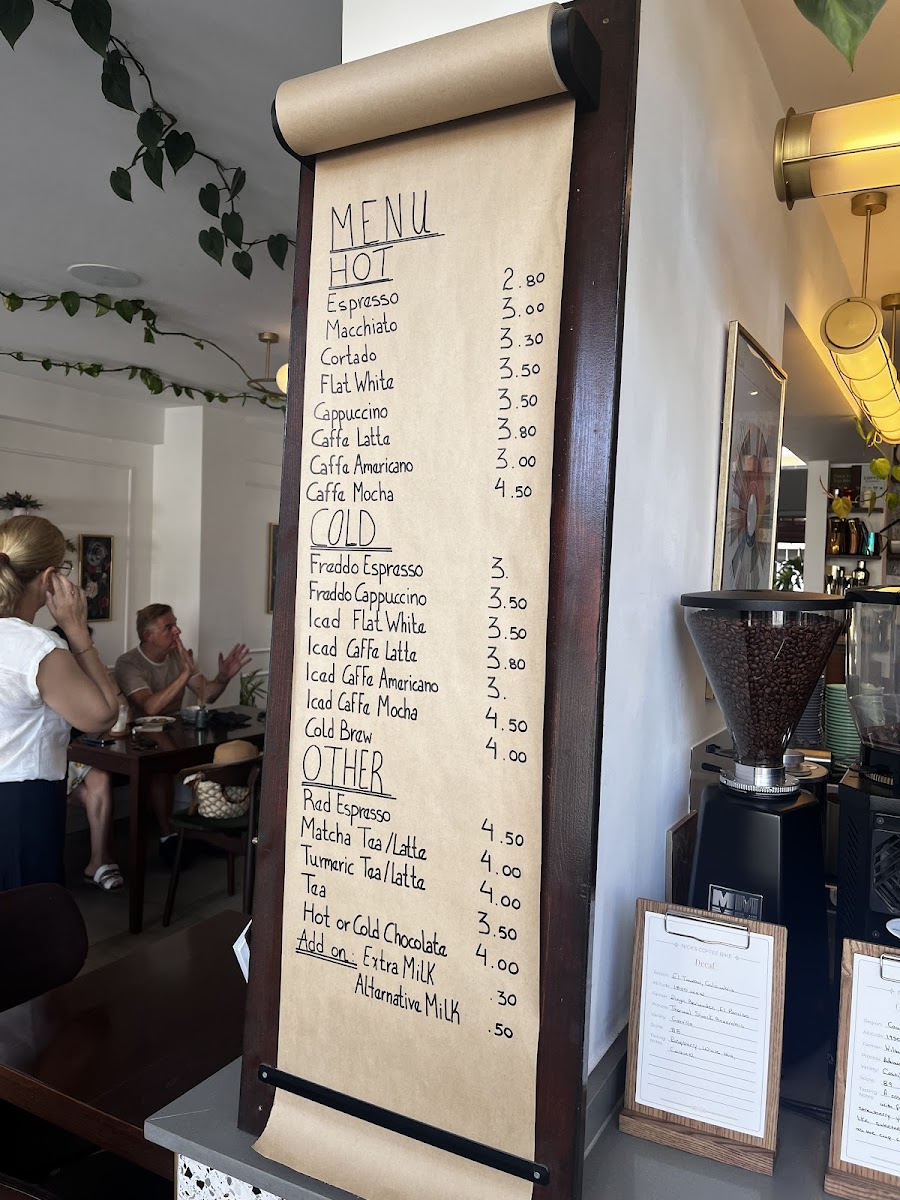 MENU
HOT
Espresso 2.80
Macchiato 3.00
Cortado 3.30
Flat White 3.50
Cappuccino 3.50
Caffe Latte 3.80
Caffe Americano 3.00
Caffe Mocha 4.50
COLD
Freddo Espresso 3.
Freddo Cappuccino 3.50
Iced Flat White 3.50
Iced Caffe Latte 3.80
Iced Caffe Americano 3.
Iced Caffe Mocha 4.50
Cold Brew 4.00
OTHER
Red Espresso 4.50
Matcha Tea/Latte 4.00
Turmeric Tea/Latte 4.00
Tea 3.50
Hot or Cold Chocolate 4.00
Add on: Extra Milk .30
Alternative Milk .50
Decaf